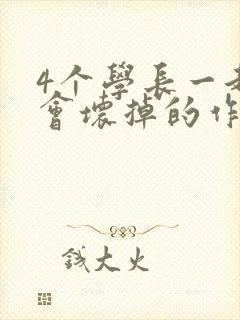 4个學長一
會壞掉的作
錢大火